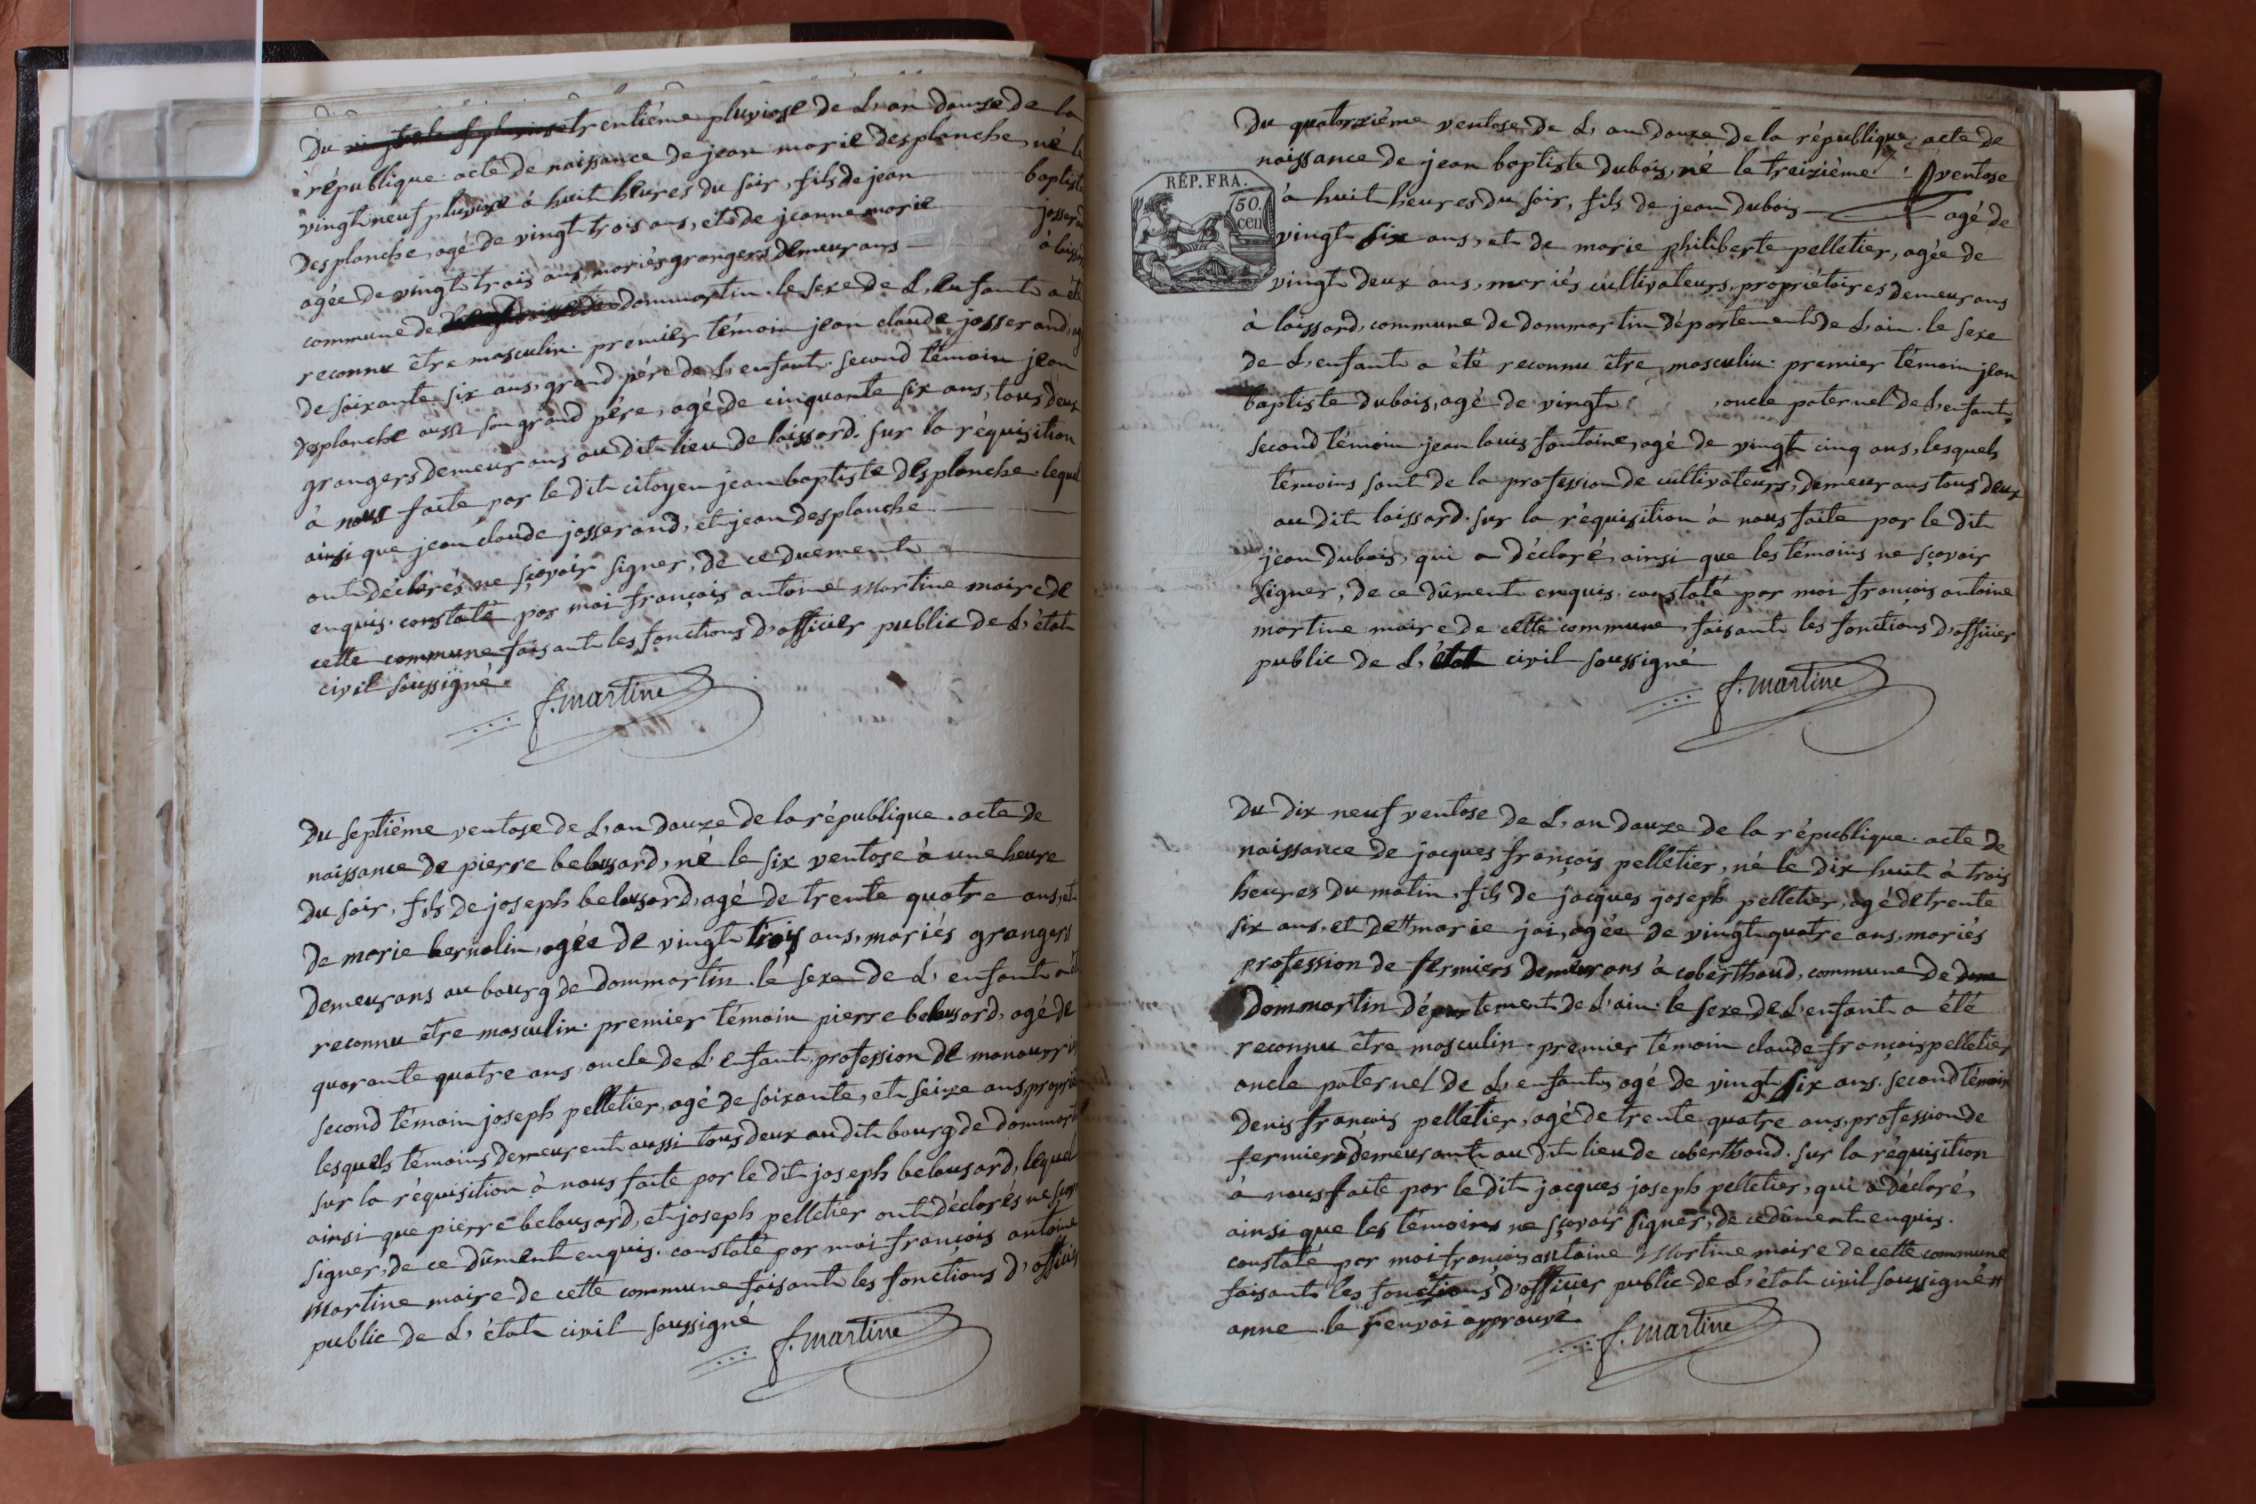 Du trentième pluviose de L'an douze de la
république. acte de naissance de jean marie desplanche, né le
vingt neuf pluviose à huit heures du soir, fils de jean baptiste
desplanche, agé de vingt trois ans, et de jeanne marie josserand
agée de vingt trois ans, mariés grangers demeurans à loissard
commune de dommartin. le sexe de L'enfant a été
reconnu être masculin. premier témoin jean claude josserand, agé
de soixante six ans, grand père de L'enfant. second témoin jean
desplanche aussi son grand père, agé de cinquante six ans, tous deux
grangers demeurans au dit lieu de loissard. sur la réquisition
à nous faite par le dit citoyen jean baptiste desplanche lequel
ainsi que jean claude josserand, et jean desplanche
ont déclarés ne sçavoir signer, de ce duement
enquis. constaté par moi françois antoine Martine maire de
cette commune faisant les fonctions d'officier public de L'état
civil soussigné.
f. martine
Du septième ventose de L'an douze de la république. acte de
naissance de pierre belousard, né le six ventose à une heure
du soir, fils de joseph belousard, agé de trente quatre ans, et
de marie bernolin, agée de vingt trois ans, mariés grangers
demeurans au bourg de dommartin. le sexe de L'enfant a été
reconnu être masculin. premier témoin pierre belousard, agé de
quarante quatre ans oncle de L'enfant, profession de
second témoin joseph pelletier, agé de soixante, et seize ans,
lesquels témoins demeurent aussi tous deux au dit bourg de dommartin
sur la réquisition à nous faite par le dit joseph belousard, lequel
ainsi que pierre belousard, et joseph pelletier ont déclarés ne
signer, de ce dûment enquis. constaté par moi françois antoine
Martine maire de cette commune faisant les fonctions d'officier
public de L'état civil soussigné
f. martine
RÉP. FRA.
50.
cen
Du quatorzième ventose de L'an douze de la république. acte de
naissance de jean baptiste dubois, né le treizième ventose
à huit heures du soir, fils de jean dubois agé de
vingt six ans, et de marie philiberte pelletier, agée de
vingt deux ans, mariés cultivateurs, propriétaires demeurans
à loissard, commune de dommartin département de L'ain. le sexe
de L'enfant a été reconnu être masculin. premier témoin jean
baptiste dubois, agé de vingt , oncle paternel de L'enfant,
second témoin jean louis fontaine, agé de vingt cinq ans, lesquels
témoins sont de la profession de cultivateurs, demeurans tous deux
au dit loissard. sur la réquisition à nous faite par le dit
jean dubois, qui a déclaré, ainsi que les témoins ne sçavoir
signer, de ce dûment enquis. constaté par moi françois antoine
martine maire de cette commune, faisant les fonctions d'officier
public de L'état civil soussigné
f. martine
Du dix neuf ventose de L'an douze de la république. acte de
naissance de jacques françois pelletier, né le dix huit à trois
heures du matin, fils de jacques joseph pelletier, agé de trente
six ans, et de # marie jai, agée de vingt quatre ans, mariés
profession de fermiers demeurans à coberthoud, commune de
Dommartin département de L'ain. le sexe de L'enfant a été
reconnu être masculin. premier témoin claude françois pelletier
oncle paternel de L'enfant, agé de vingt six ans. second témoin
denis françois pelletier, agé de trente quatre ans, profession de
fermiers demeurants au dit lieu de coberthoud. sur la réquisition
à nous faite par le dit jacques joseph pelletier, qui a déclaré,
ainsi que les témoins ne sçavoir signer, de ce dûment enquis.
constaté par moi françois antoine Martine maire de cette commune
faisant les fonctions d'officier public de L'état civil soussigné #
anne. le renvoi approuvé.
f. martine